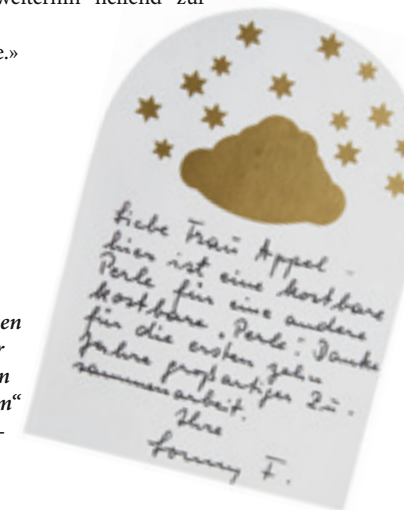 weiterhin helfend zur
e.»
Liebe Frau Appel –
hier ist eine kostbare
Perle für eine andere
kostbare „Perle“: Danke
für die ersten zehn
Jahre großartiger Zu-
sammenarbeit.
Ihre
F.
en
r
n
n“
–